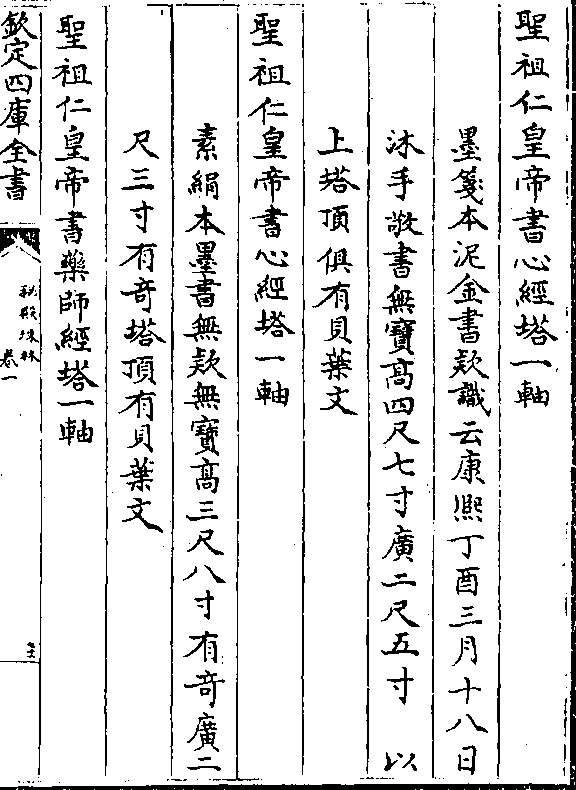 聖祖仁皇帝書心經塔一軸
墨箋本泥金書欵識云康熙丁酉三月十八日
沐手敬書無寶高四尺七寸廣二尺五寸 以
上塔頂俱有貝葉文
聖祖仁皇帝書心經塔一軸
素絹本墨書無欵無寶高三尺八寸有奇廣二
尺三寸有奇塔頂有貝葉文
聖祖仁皇帝書藥師經塔一軸
欽定四庫全書
秘殿珠林
卷一